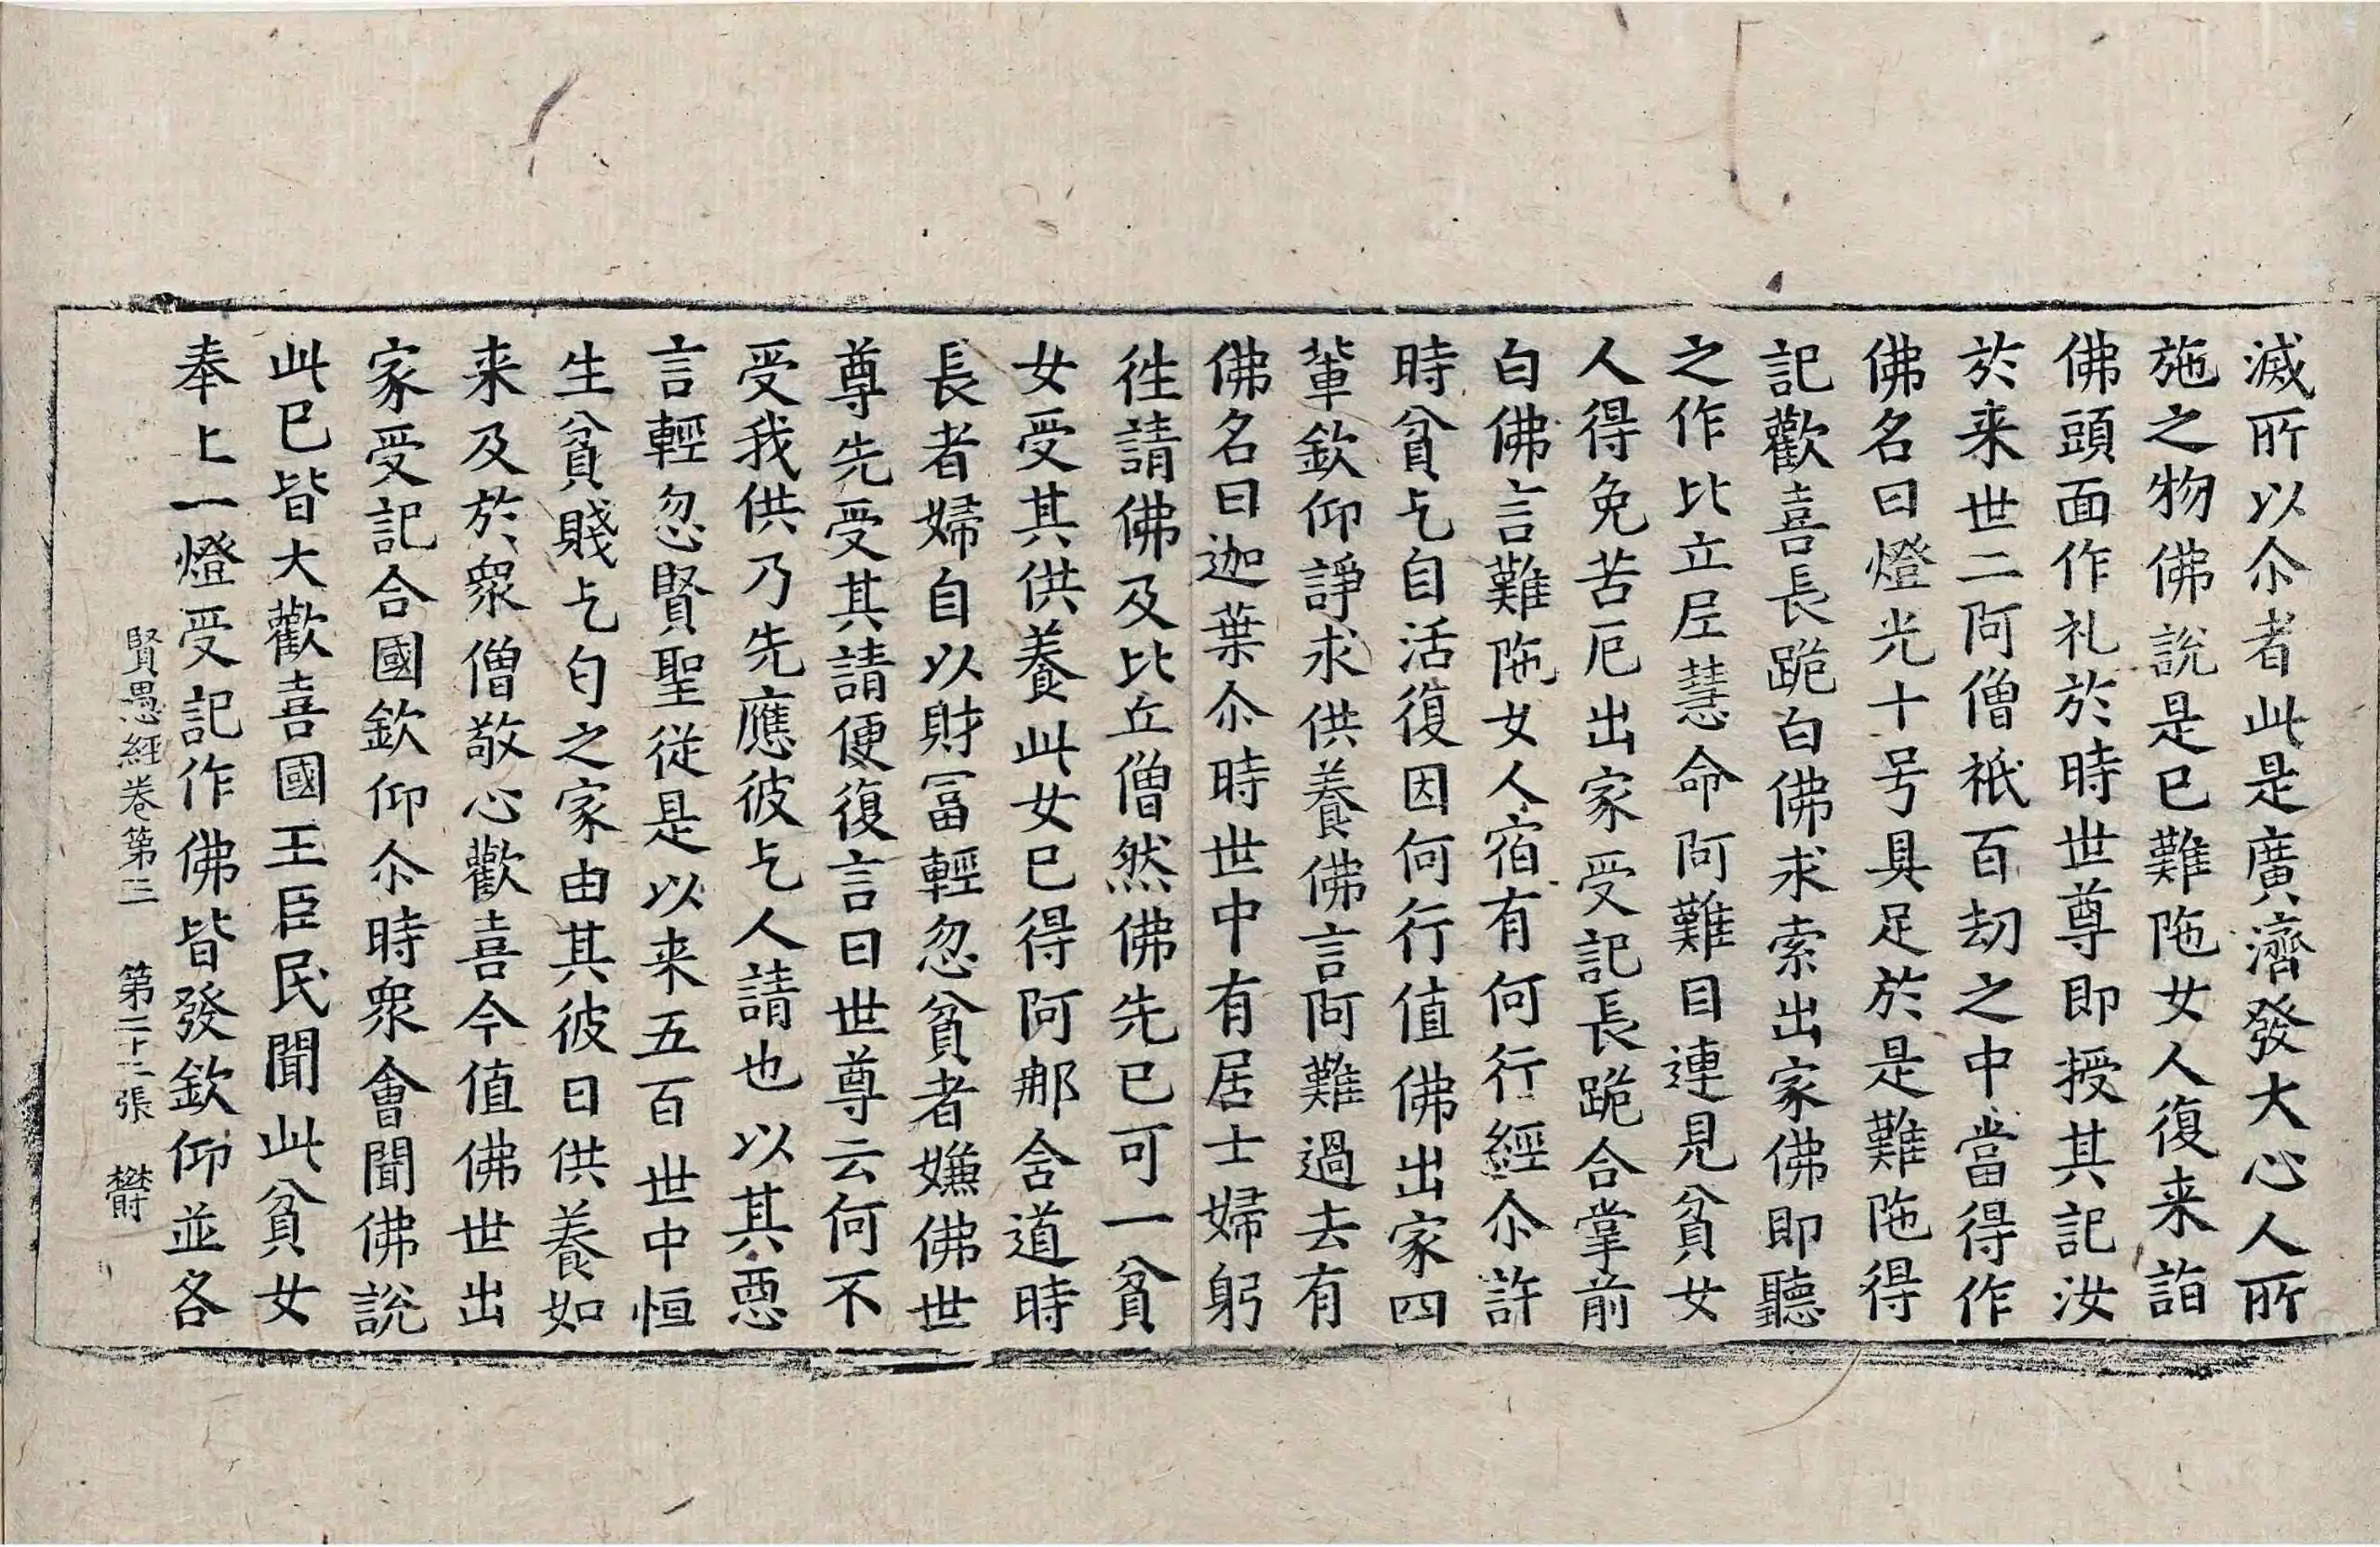 滅所以尒者此是廣濟發大心人所
施之物佛說是已難陁女人復来詣
佛頭面作礼於時世尊即授其記汝
於来世二阿僧祇百劫之中當得作
佛名曰燈光十号具足於是難陁得
記歡喜長跪白佛求索出家佛即聽
之作比丘尼慧命阿難目連見貧女
人得免苦厄出家受記長跪合掌前
白佛言難陁女人宿有何行經尒許
時貧乞自活復因何行值佛出家四
輩欽仰諍求供養佛言阿難過去有
佛名曰迦葉尒時世中有居士婦躬
往請佛及比丘僧然佛先已可一貧
女受其供養此女已得阿那含道時
長者婦自以財冨輕忽貧者嫌佛世
尊先受其請便復言曰世尊云何不
受我供乃先應彼乞人請也以其惡
言輕忽賢聖従是以来五百世中恒
生貧賤乞匃之家由其彼日供養如
来及於衆僧敬心歡喜今值佛世出
家受記合國欽仰尒時衆會聞佛說
此已皆大歡喜國王臣民聞此貧女
奉上一燈受記作佛皆發欽仰並各
賢愚經卷第三 第二十二張 欝